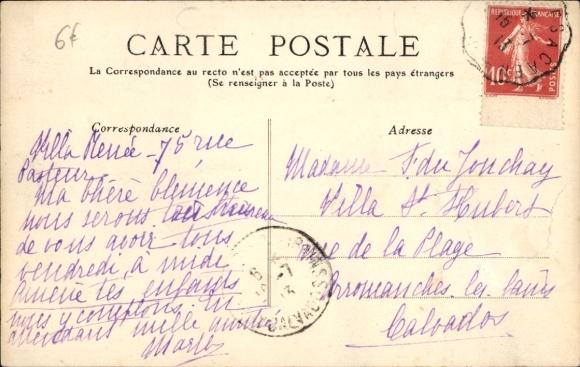 6f
CARTE POSTALE
La Correspondance au recto n'est pas acceptée par tous les pays étrangers
(Se renseigner à la Poste)
REPUBLIQUE FRANÇAISE
10c
POSTES
Correspondance
Villa Renée - 75 rue
Pasteur
Ma chère Clémence
nous serons
de vous avoir tous
vendredi, à midi
Amène tes enfants
nous y comptons. En
attendant mille amitiés
Marthe
Adresse
Madame F. du Jonchay
Villa St Hubert
rue de la Plage
Arromanches les bains
Calvados
CALVADOS